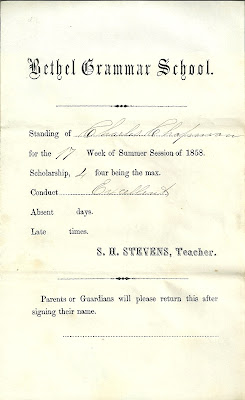 Bethel Grammar School.
Standing of Charles Chapman
for the 17 Week of Summer Session of 1858.
Scholarship, 4 four being the max.
Conduct Excellent
Absent days.
Late times.
S. H. STEVENS, Teacher.
Parents or Guardians will please return this after
signing their name.